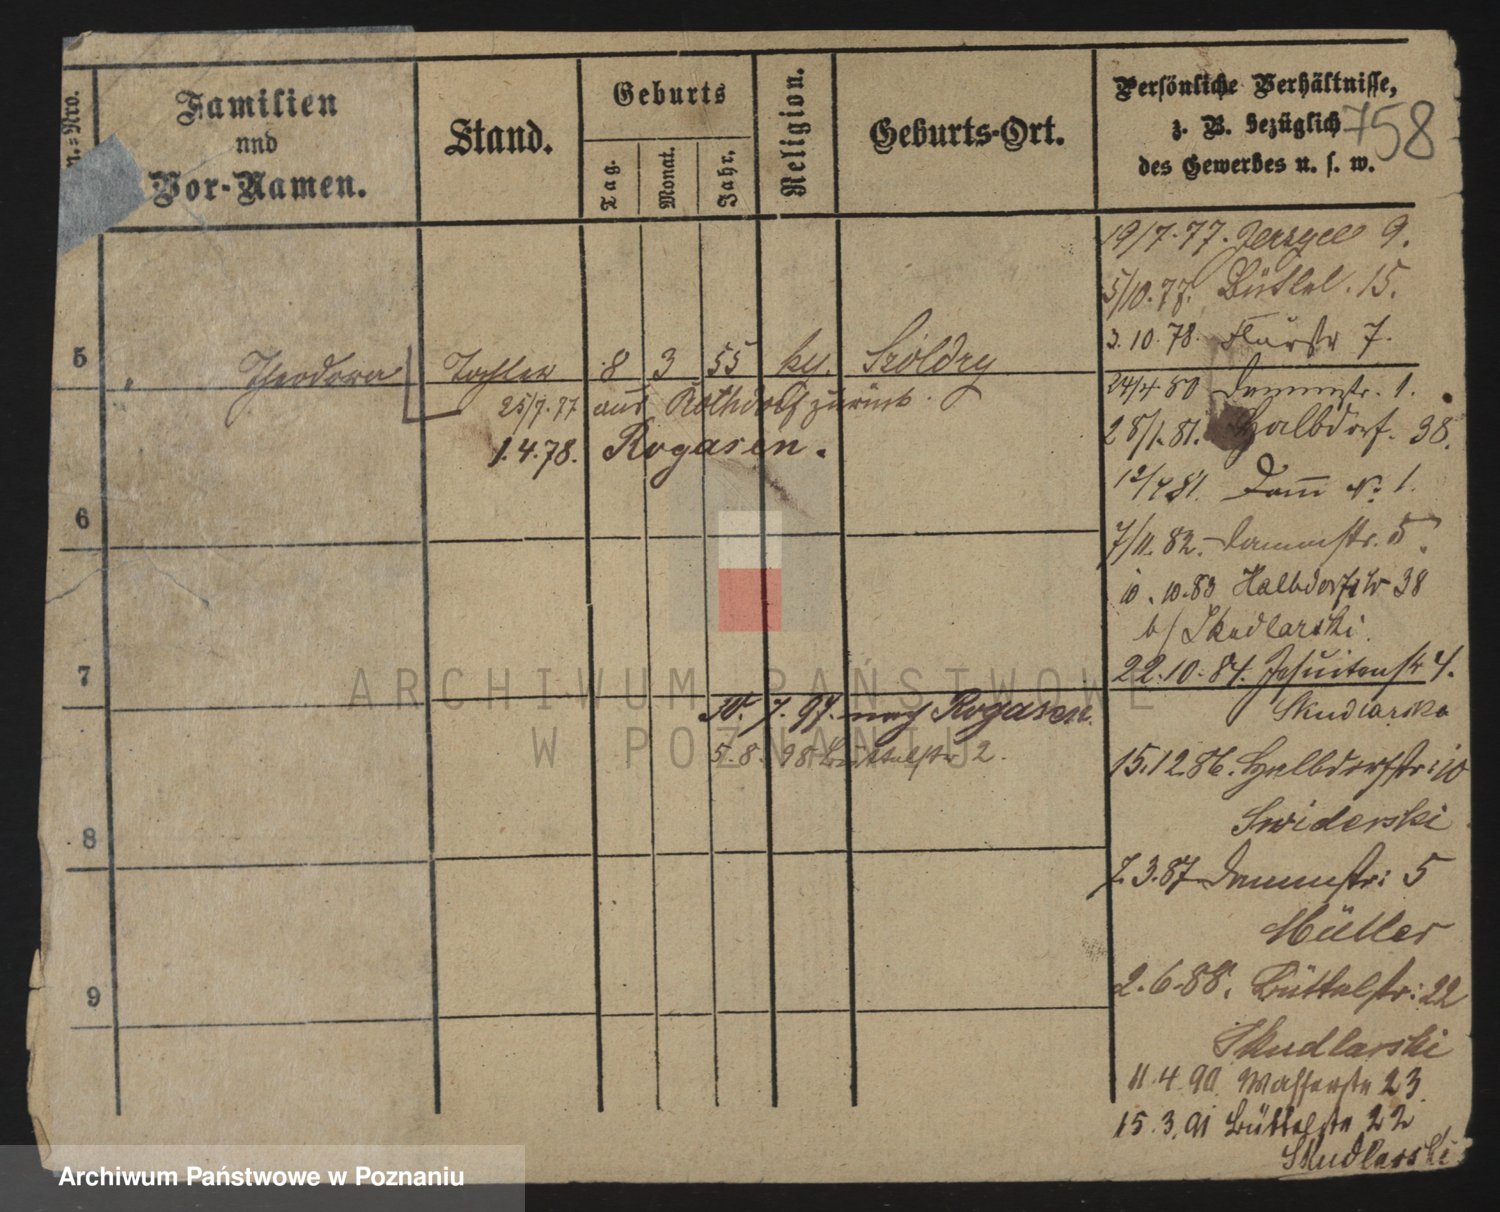 Familien
und
Vor-Namen.
Stand.
Geburts
Tag.
Monat.
Jahr.
Religion.
Geburts-Ort.
Persönliche Verhältnisse,
z. B. bezüglich
des Gewerbes u. s. w.
758
5
" Theodora Tochter 8 3 55 ka. Szoldry
25/7.77 aus Rothdorf zurück.
1.4.78. Rogasen.
6
7
10. 7. 97. nach Rogasen.
5.8.98 Büttelstr 2.
8
9
19/7.77. Jerzyce 9.
5/10.77. Büttel. 15.
3.10.78. 7.
24/4.80 Dammstr. 1.
28/1.81. Halbdorf. 38.
12/4 81. Damm No. 1.
7/11.82. Dammstr. 5.
10.10.83 Halbdorfstr 38
b/ Skudlarski.
22.10.84. Jesuitenstr 4.
Skudlarska
15.12.86. Halbdorfstr: 10
Swiderski
7.3.87 Dammstr: 5
Müller
2.6.88. Büttelstr: 22
Skudlarski
11.4.90 Wasserstr 23.
15.3.91 Büttelstr 22
Skudlarski
ARCHIWUM PAŃSTWOWE
W POZNANIU
Archiwum Państwowe w Poznaniu